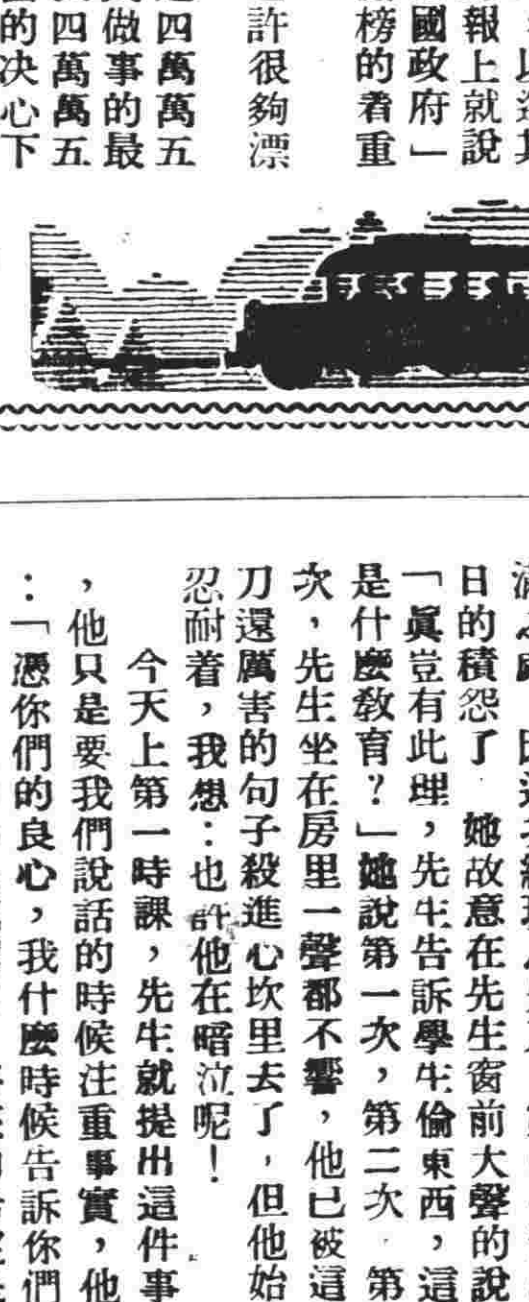 報上就說
國政府」
榜的着重
許很夠漂
四萬萬五
做事的最
四萬萬五
的決心下
日的積怨了．她故意在先生窗前大聲的說
「眞豈有此理，先生告訴學生偷東西，這
是什麼敎育？」她說第一次，第二次．第
次，先生坐在房里一聲都不響，他已被這
刀還厲害的句子殺進心坎里去了，但他始
忍耐着，我想：也許他在暗泣呢！
今天上第一時課，先生就提出這件事
，他只是要我們說話的時候注重事實，他
：「憑你們的良心，我什麼時候告訴你們